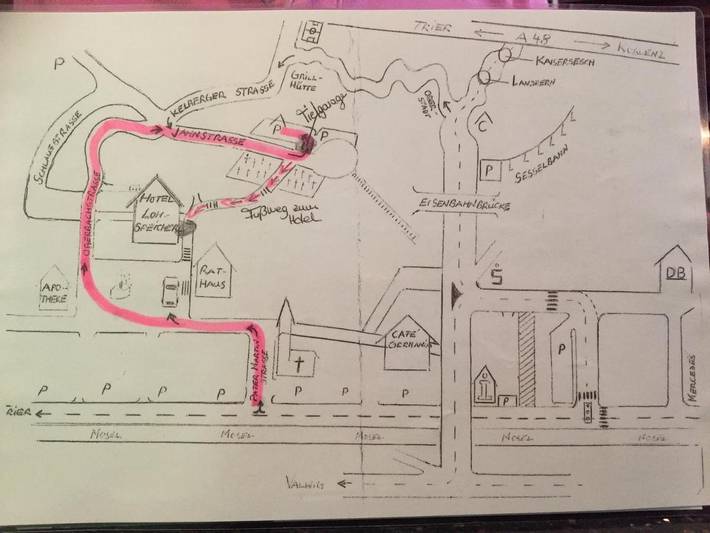 TRIER
A 48
KOBLENZ
KAISERSESCH
LANDKERN
P
GRILL-
HÜTTE
KELBERGER STRASSE
Tiefgarage
P
P
JAHNSTRASSE
SCHLAUFSTRASSE
OBER-
STADT
C
P
SESSELBAHN
OBERBACHSTRASSE
HOTEL
LOH-
SPEICHER
Fußweg zum
Hotel
EISENBAHNBRÜCKE
APO-
THEKE
RAT-
HAUS
S
DB
CAFÉ
P
i
P
MERCEDES
PATER MARTIN
STRASSE
P
P
P
P
P
P
TRIER
MOSEL
MOSEL
MOSEL
MOSEL
MOSEL
VALWIG